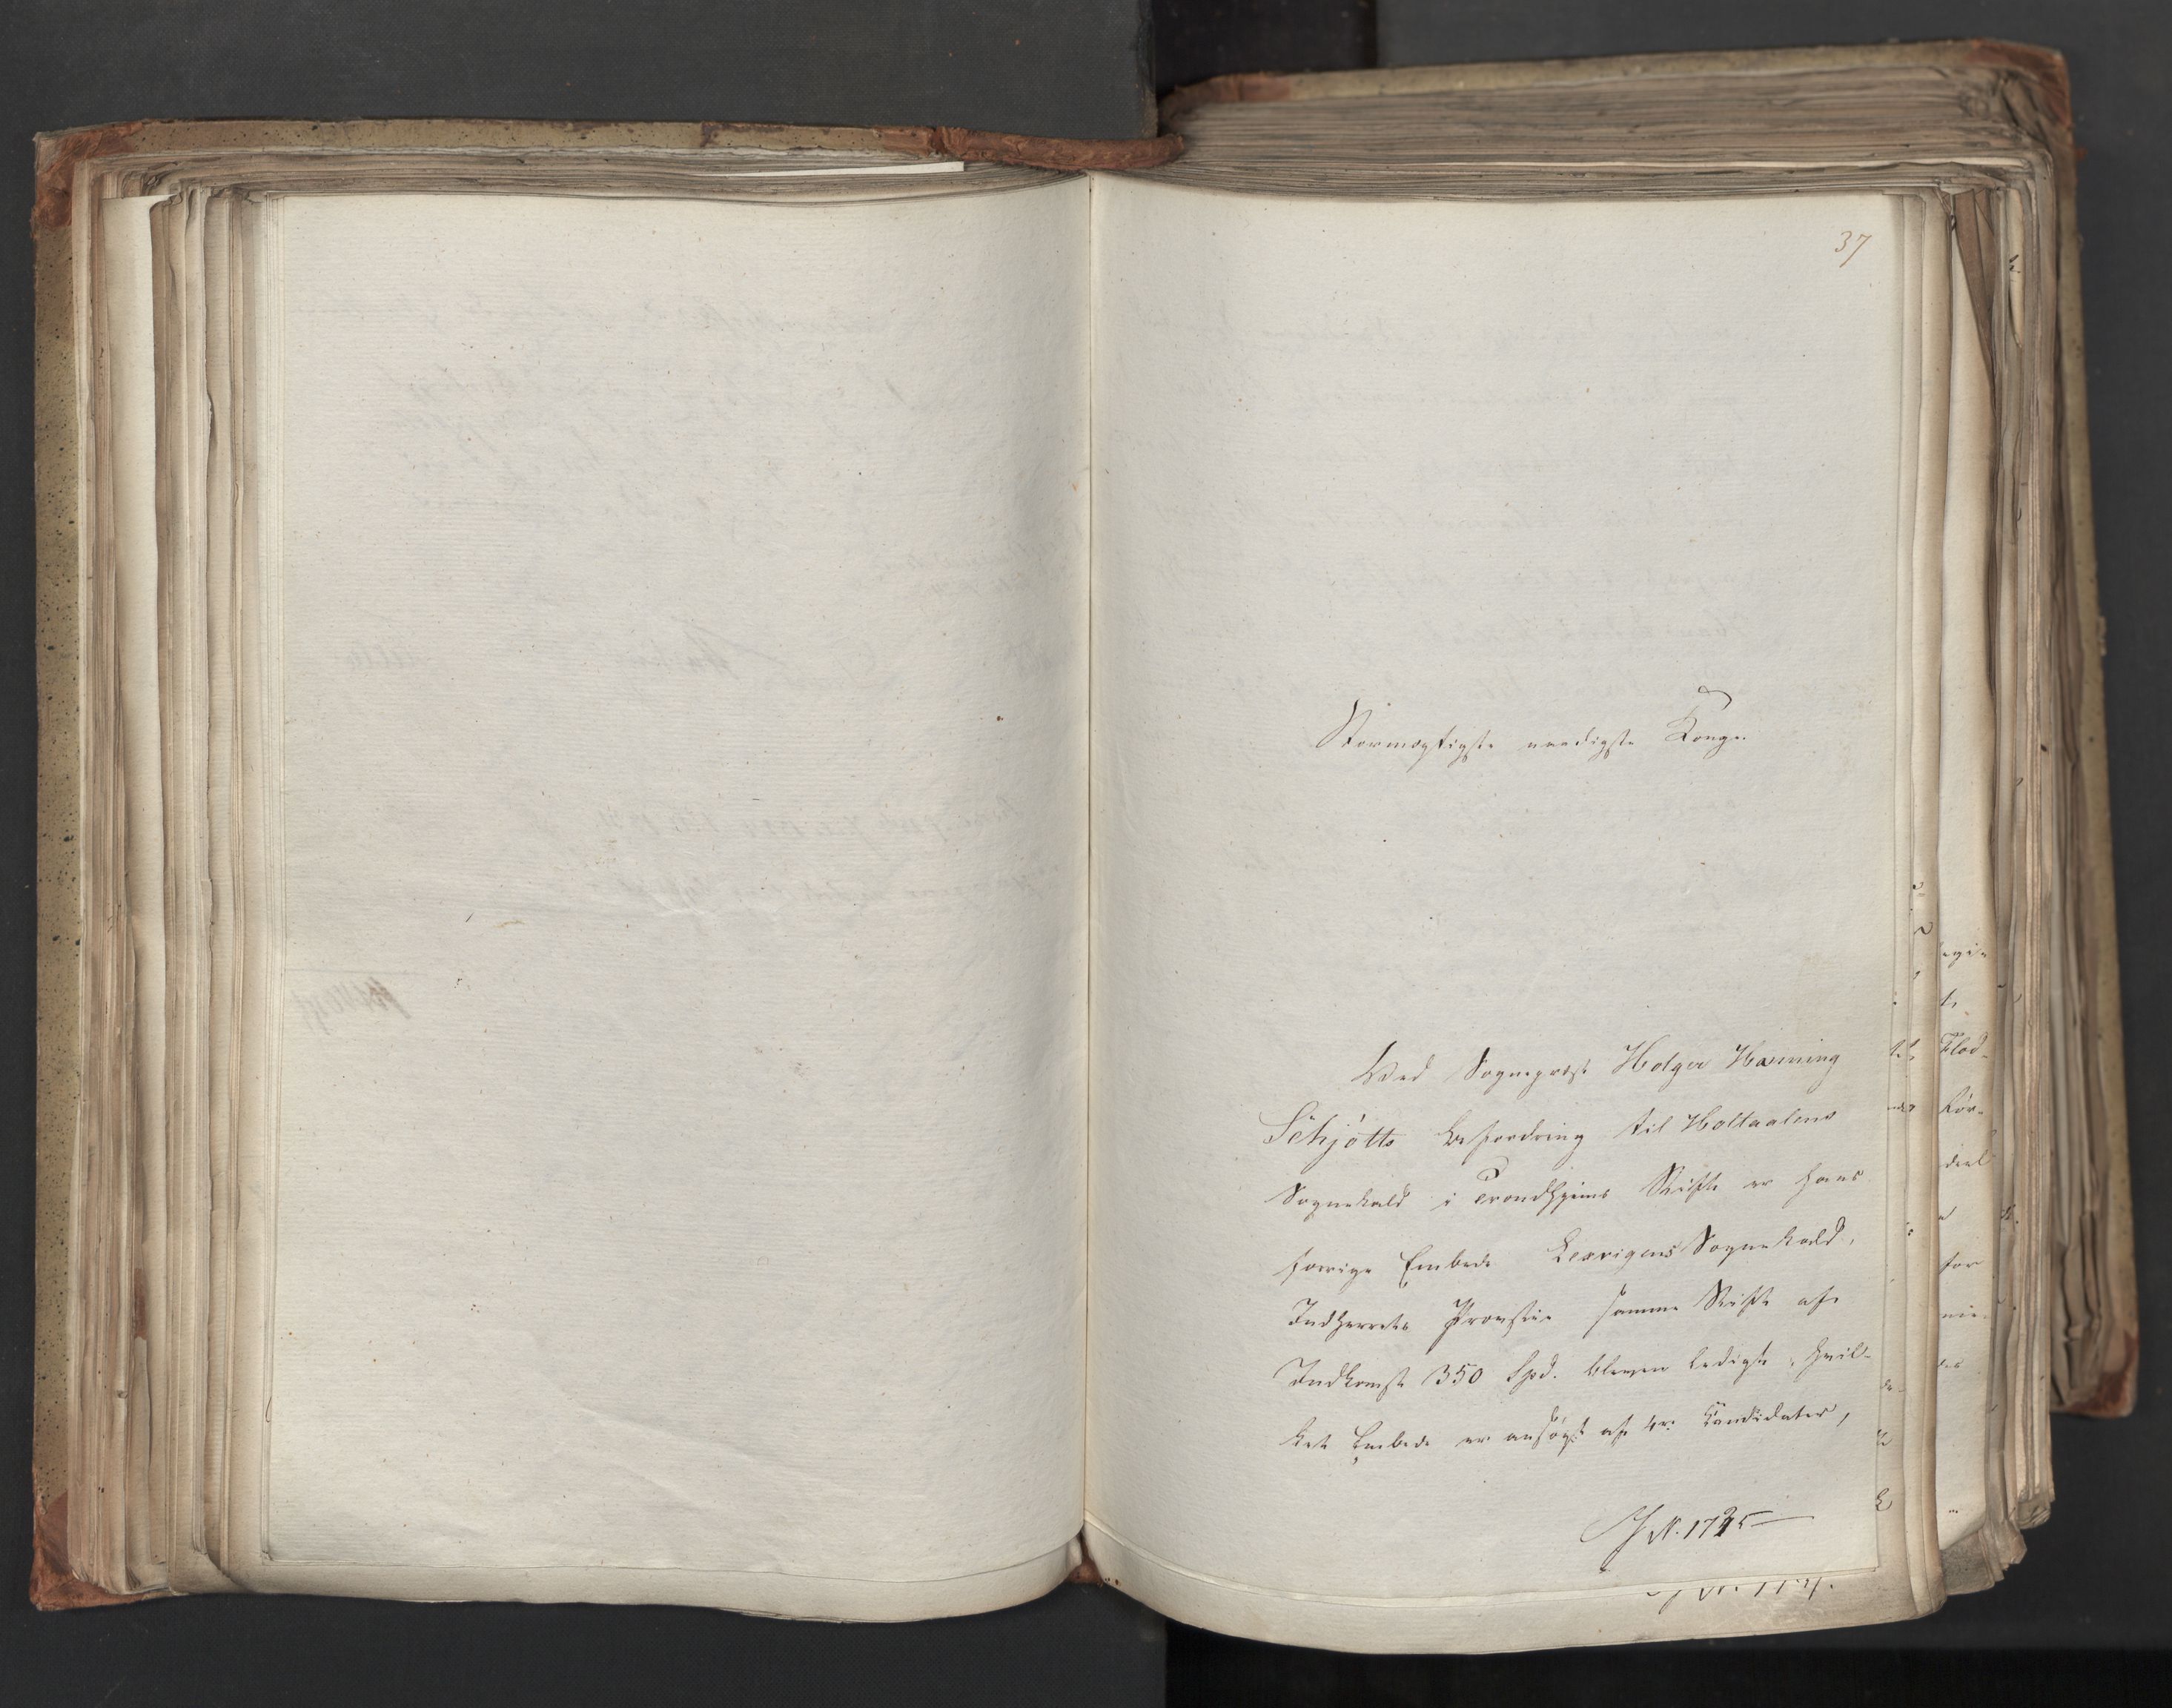 37
Stormægtigste naadigste Konge.
Ved Sognepræst Holger Hanning
Schjötts Befordring til Holtaalens
Sognekald i Trondhjems Stift er hans
forrige Embede Lexvigens Sognekald,
Indherreds Provstie samme Stift af
Indkomst 350 Spd. bleven ledigt, hvil-
ket Embede er ansögt af 4re Candidater,
J. N. 1725